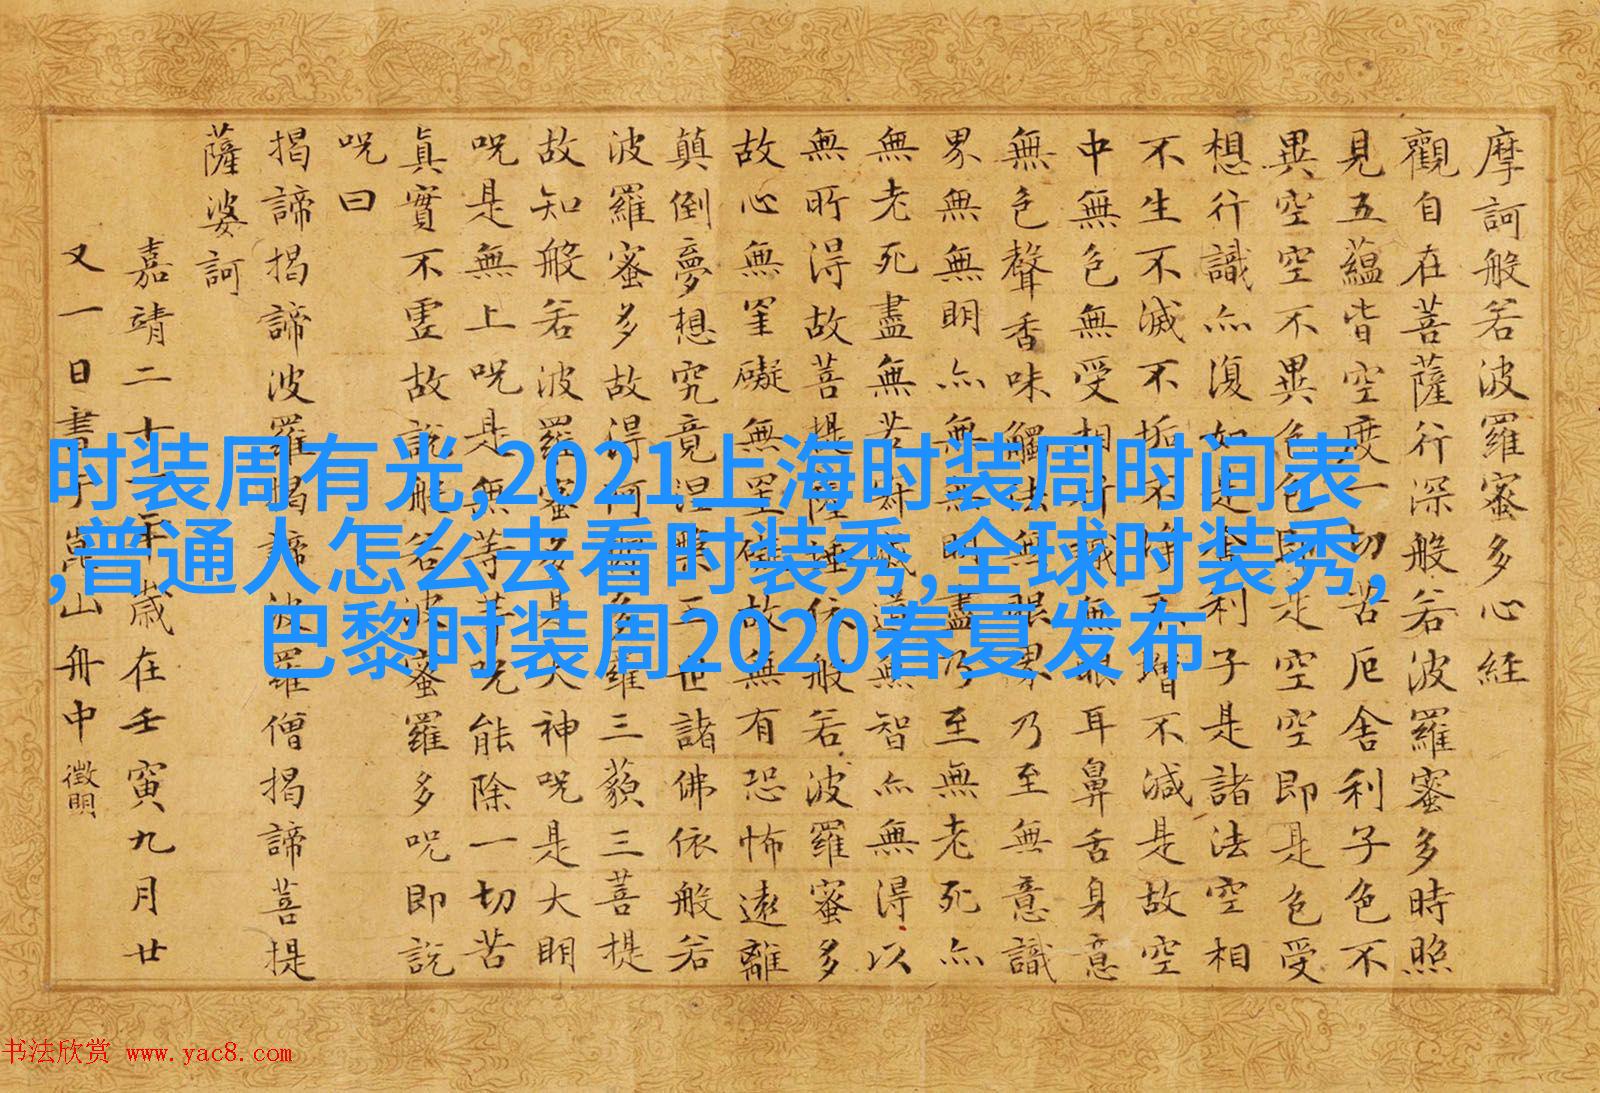 摩訶般若波羅蜜多心経
觀自在菩薩行深般若波羅蜜多時照
見五蘊皆空度一切苦厄舍利子色不
異空空不異色色即是空空即是色受
想行識亦復如是舍利子是諸法空相
不生不滅不垢不淨不增不減是故空
中無色無受想行識無眼耳鼻舌身意
無色聲香味觸法無眼界乃至無意識
界無無明亦無無明盡乃至無老死亦
無老死盡無苦集滅道無智亦無得以
無所得故菩提薩埵依般若波羅蜜多
故心無罣礙無罣礙故無有恐怖遠離
顛倒夢想究竟涅槃三世諸佛依般若
波羅蜜多故得阿耨多羅三藐三菩提
故知般若波羅蜜多是大神呪是大明
呪是無上呪是無等等呪能除一切苦
真實不虛故說般若波蜜羅多呪即說
呪曰
揭諦揭諦波羅揭諦波羅僧揭諦菩提
薩婆訶
嘉靖二十一年歲在壬寅九月廿
又一日書于崑山舟中 徵明
时装周有光,2021上海时装周时间表
,普通人怎么去看时装秀,全球时装秀,
巴黎时装周2020春夏发布
书法欣赏 www.yac8.com